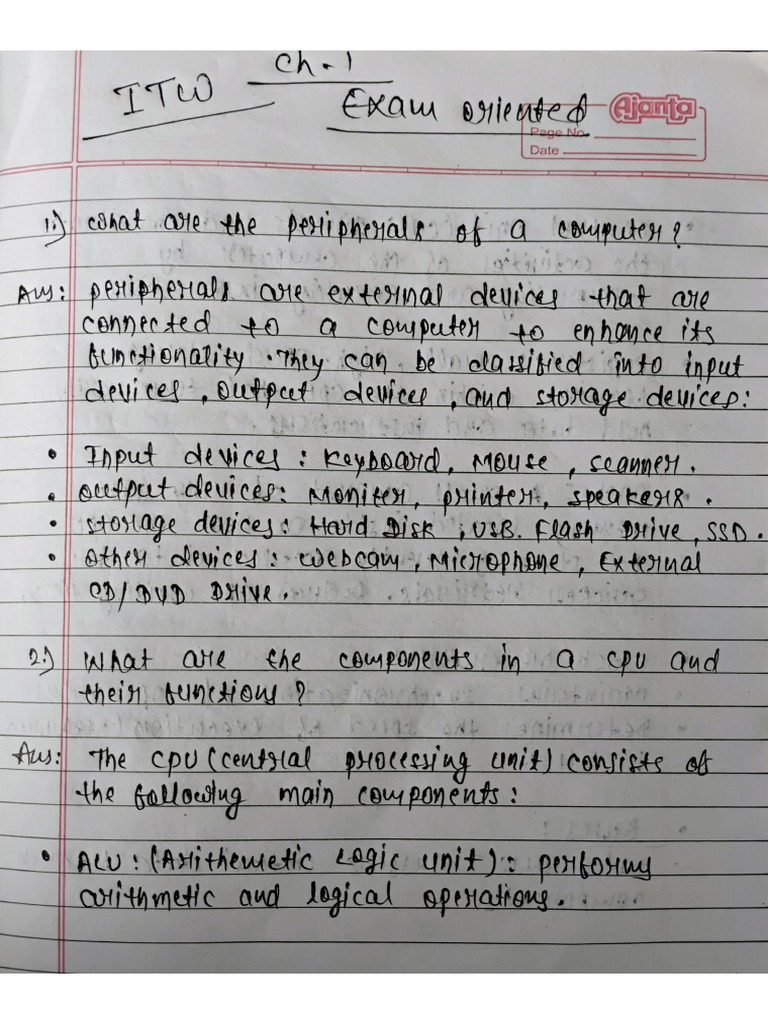 Ch-1
ITW
Exam oriented
Ajanta
Page No.
Date
1.) What are the peripherals of a computer?
Ans: peripherals are external devices that are
connected to a computer to enhance its
functionality. They can be classified into input
devices, output devices, and storage devices:
• Input devices: Keyboard, Mouse, scanner.
• Output devices: Moniter, printer, speakers.
• Storage devices: Hard Disk, USB. Flash Drive, SSD.
• Other devices: Webcam, Microphone, External
CD/DVD Drive.
2.) What are the components in a CPU and
their functions?
Ans: The CPU (central processing unit) consists of
the following main components:
• ALU: (Arithemetic Logic unit): performs
arithmetic and logical operations.